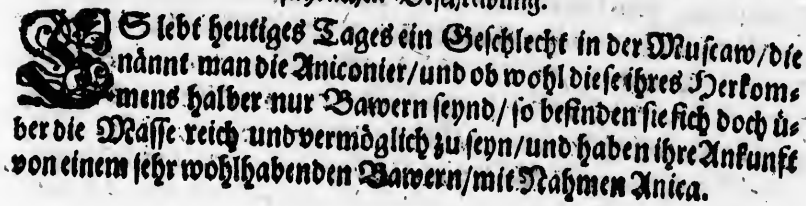 ES lebt heutiges Tages ein Geschlecht in der Muscaw/die
nännt man die Aniconier/und ob wohl diese ihres Herkom-
mens halber nur Bawern seynd/so befinden sie sich doch ü-
ber die Masse reich und vermöglich zu seyn/und haben ihre Ankunfft
von einem sehr wohlhabenden Bawern/mit Nahmen Anica.